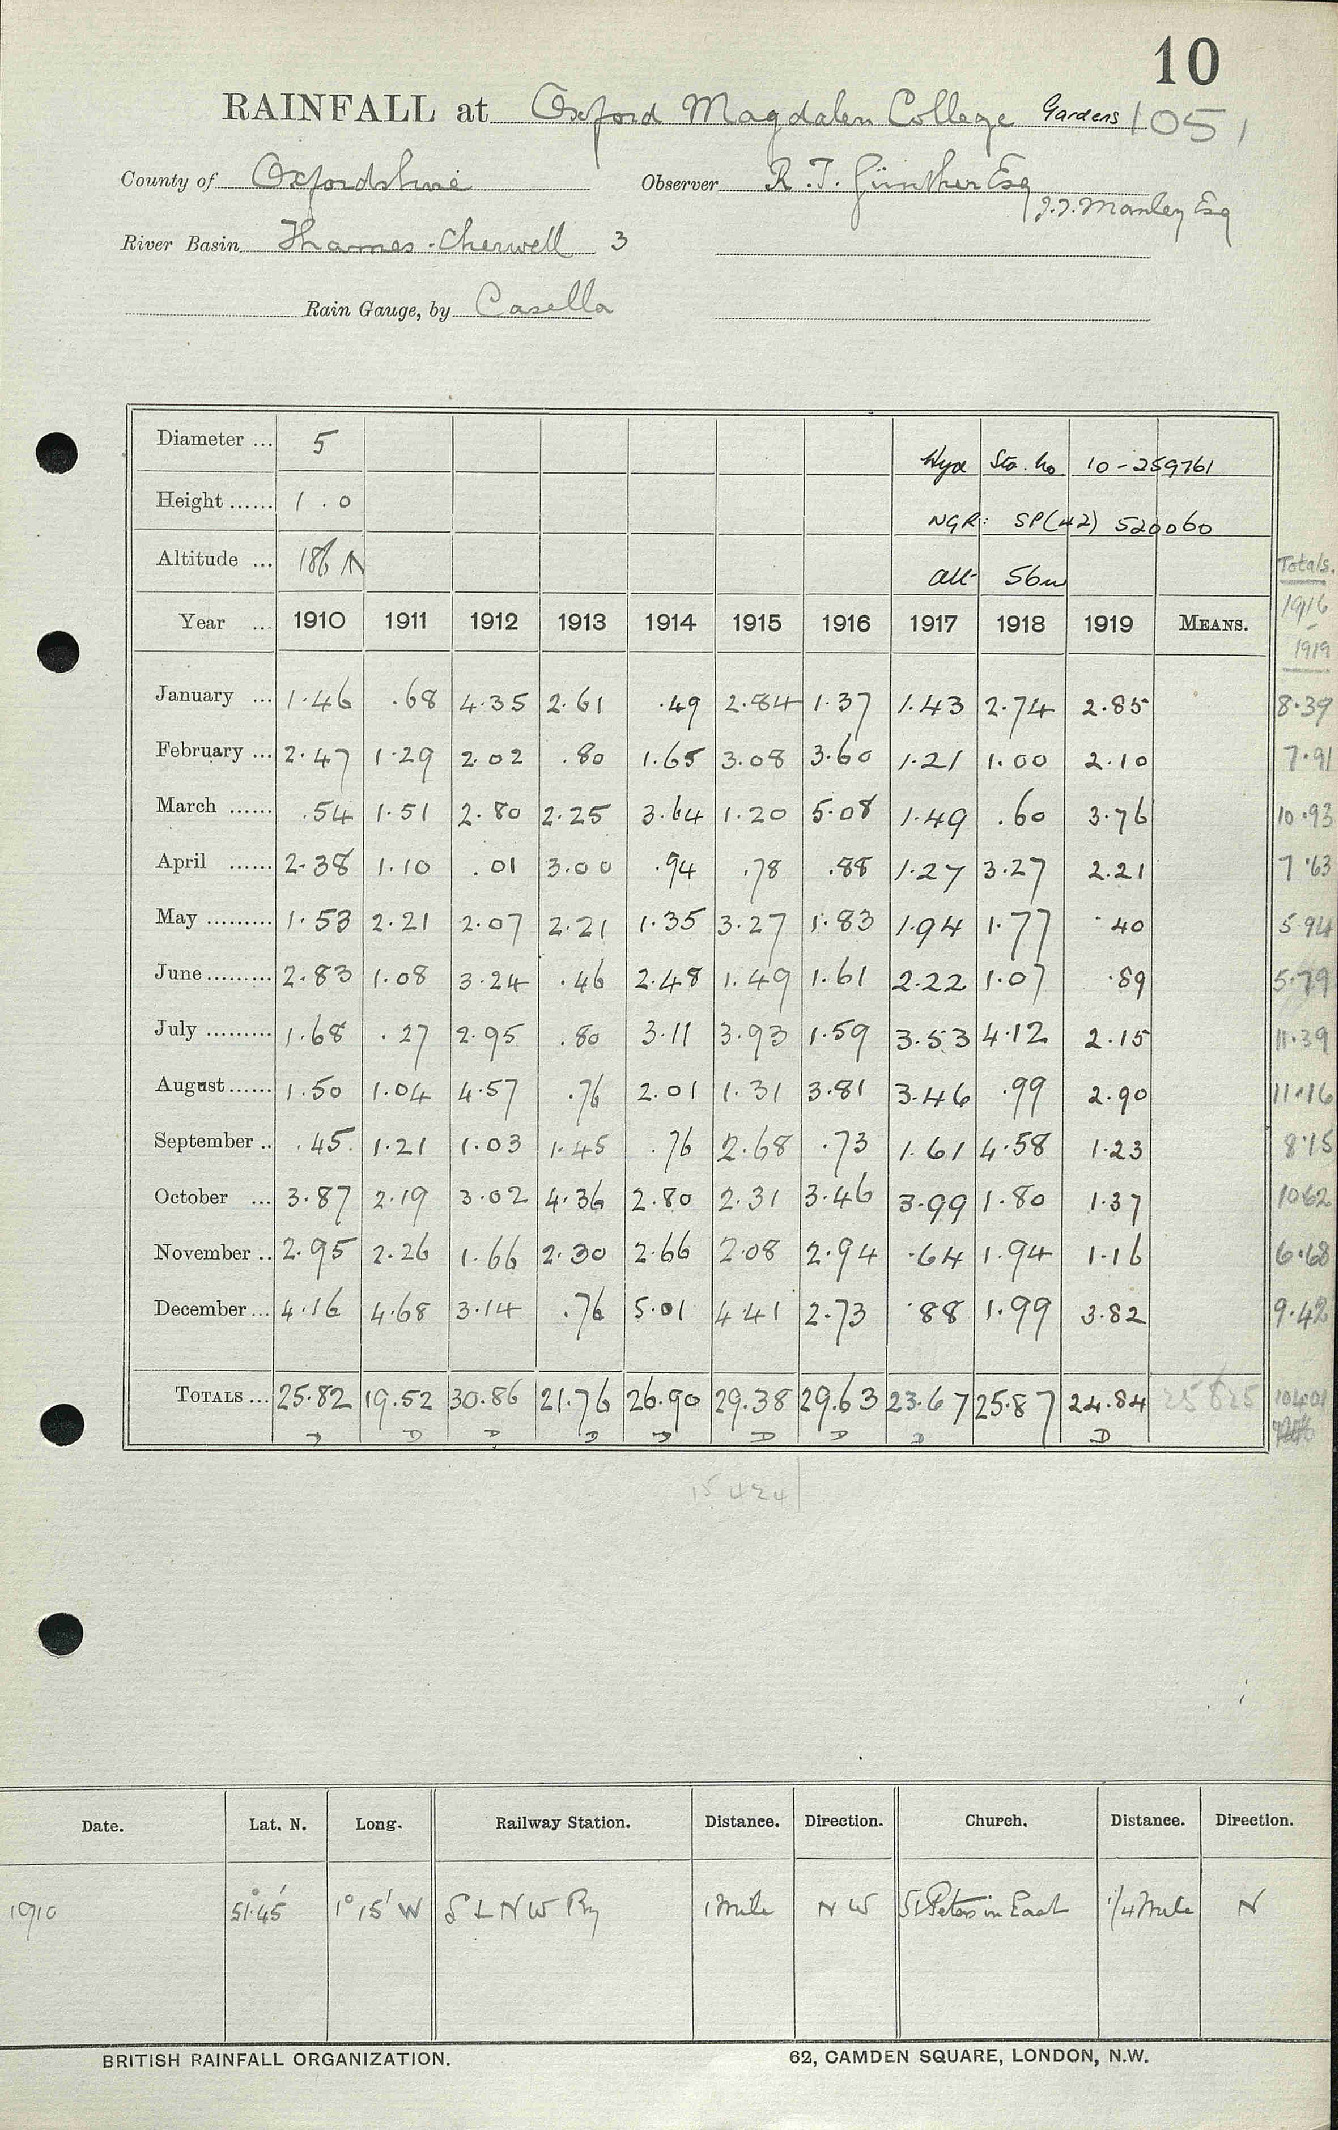 10
RAINFALL at Oxford Magdalen College Gardens 1051
County of Oxfordshire Observer R. T. Günther Esq
J. J. Manley Esq
River Basin Thames-Cherwell 3
Rain Gauge, by Casella
Diameter ... 5 Hyd Sta. No 10-259761
Height ...... 1.0 NGR: SP(42) 520060
Altitude ... 186 alt 56m Totals.
Year ... 1910 1911 1912 1913 1914 1915 1916 1917 1918 1919 MEANS. 1916-1919
January ... 1.46 .68 4.35 2.61 .49 2.84 1.37 1.43 2.74 2.85 8.39
February ... 2.47 1.29 2.02 .80 1.65 3.08 3.60 1.21 1.00 2.10 7.91
March ...... .54 1.51 2.80 2.25 3.64 1.20 5.08 1.49 .60 3.76 10.93
April ...... 2.38 1.10 .01 3.00 .94 .78 .88 1.27 3.27 2.21 7.63
May ......... 1.53 2.21 2.07 2.21 1.35 3.27 1.83 1.94 1.77 .40 5.94
June ......... 2.83 1.08 3.24 .46 2.48 1.49 1.61 2.22 1.07 .89 5.79
July ......... 1.68 .27 2.95 .80 3.11 3.93 1.59 3.53 4.12 2.15 11.39
August ...... 1.50 1.04 4.57 .76 2.01 1.31 3.81 3.46 .99 2.90 11.16
September .. .45 1.21 1.03 1.45 .76 2.68 .73 1.61 4.58 1.23 8.15
October ... 3.87 2.19 3.02 4.36 2.80 2.31 3.46 3.99 1.80 1.37 10.62
November .. 2.95 2.26 1.66 2.30 2.66 2.08 2.94 .64 1.94 1.16 6.68
December ... 4.16 4.68 3.14 .76 5.01 4.41 2.73 .88 1.99 3.82 9.42
TOTALS ... 25.82 19.52 30.86 21.76 26.90 29.38 29.63 23.67 25.87 24.84 25.825 104.01
D D D D D D D D D
15 424
Date. Lat. N. Long. Railway Station. Distance. Direction. Church. Distance. Direction.
1910 51°45' 1°15' W S L N W Ry 1 Mile N W St Peters in East 1/4 Mile N
BRITISH RAINFALL ORGANIZATION. 62, CAMDEN SQUARE, LONDON, N.W.